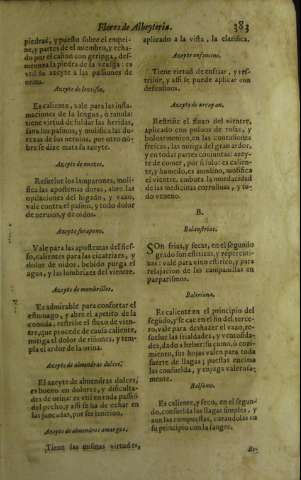 Flores de Albeyteria. 383
piedras, y puesto sobre el empei-
ne, y partes de el miembro, y echa-
do por el cañon con geringa, des-
menuza la piedra de la vexiga: es
vtil su azeyte a las passiones de
orina.
Azeyte de lentisco.
Es caliente, vale para las infla-
maciones de la lengua, ò ranula:
tiene virtud de soldar las heridas,
sana los palmos, y molifica las du-
rezas de los nervios, por otro nõ-
bre se dize mata su azeyte.
Azeyte de nuezes.
Resuelve los lamparones, moli-
fica las apostemas duras, abre las
opilaciones del higado, y vazo,
vale contra el pasmo, y todo dolor
de nervios, y de oidos.
Azeyte
Vale para las apostemas del sies-
so, calientes para las cicatrizes, y
dolor de oidos, bebido purga el
agua, y las lombrizes del vientre.
Azeyte de membrillos.
Es admirable para confortar el
estomago, y abre el apetito de la
comida: restriñe el fluxo de vien-
tre, que procede de causa caliente,
mitiga el dolor de riñones, y tem-
pla el ardor de la orina.
Azeyte de almendras dulces.
El azeyte de almendras dulces,
es bueno en dolores, y dificulta-
des de orina: es vtil en toda passiõ
del pecho, y assi se ha de echar en
las juncadas, por ser lenitivo.
Azeyte de almendras amargas.
Tiene las mismas virtudes,
aplicado a la vista, la clarifica.
Azeyte onfancino.
Tiene virtud de enfriar, y res-
triñir, y assi se puede aplicar con
defensivos.
Azeyte de arrayan.
Restriñe el fluxo del vientre,
aplicado con polvos de rosas, y
boloarmenico, en las contusiones
frescas, las mitiga del gran ardor,
y en todas partes conjuntas: azey-
te de comer, por si solo: es calien-
te, y humedo, es anodino, molifica
el vientre, embota la mordacidad
de las medicinas corrosivas, y to-
do veneno.
B.
Balaustrias.
SOn frias, y secas, en el segundo
grado son estiticas, y repercuti-
vas: vale para vino estitico, y para
relajacion de las campanillas en
parparismos.
Baleriana.
Es caliente en el principio del
segũdo, y seca en el fin del terce-
ro, vale para deshazer el vazo, re-
suelve las frialdades, y ventosida-
des, dado a beber: su çumo, ò coci-
miento, sus hojas valen para toda
suerte de llagas; puestas encima
las consuelda, y enjuga valerosa-
mente.
Balsamo.
Es caliente, y seco, en el segun-
do, consuelda las llagas simples, y
aun las compuestas, curandolas en
su principio con la sangre.